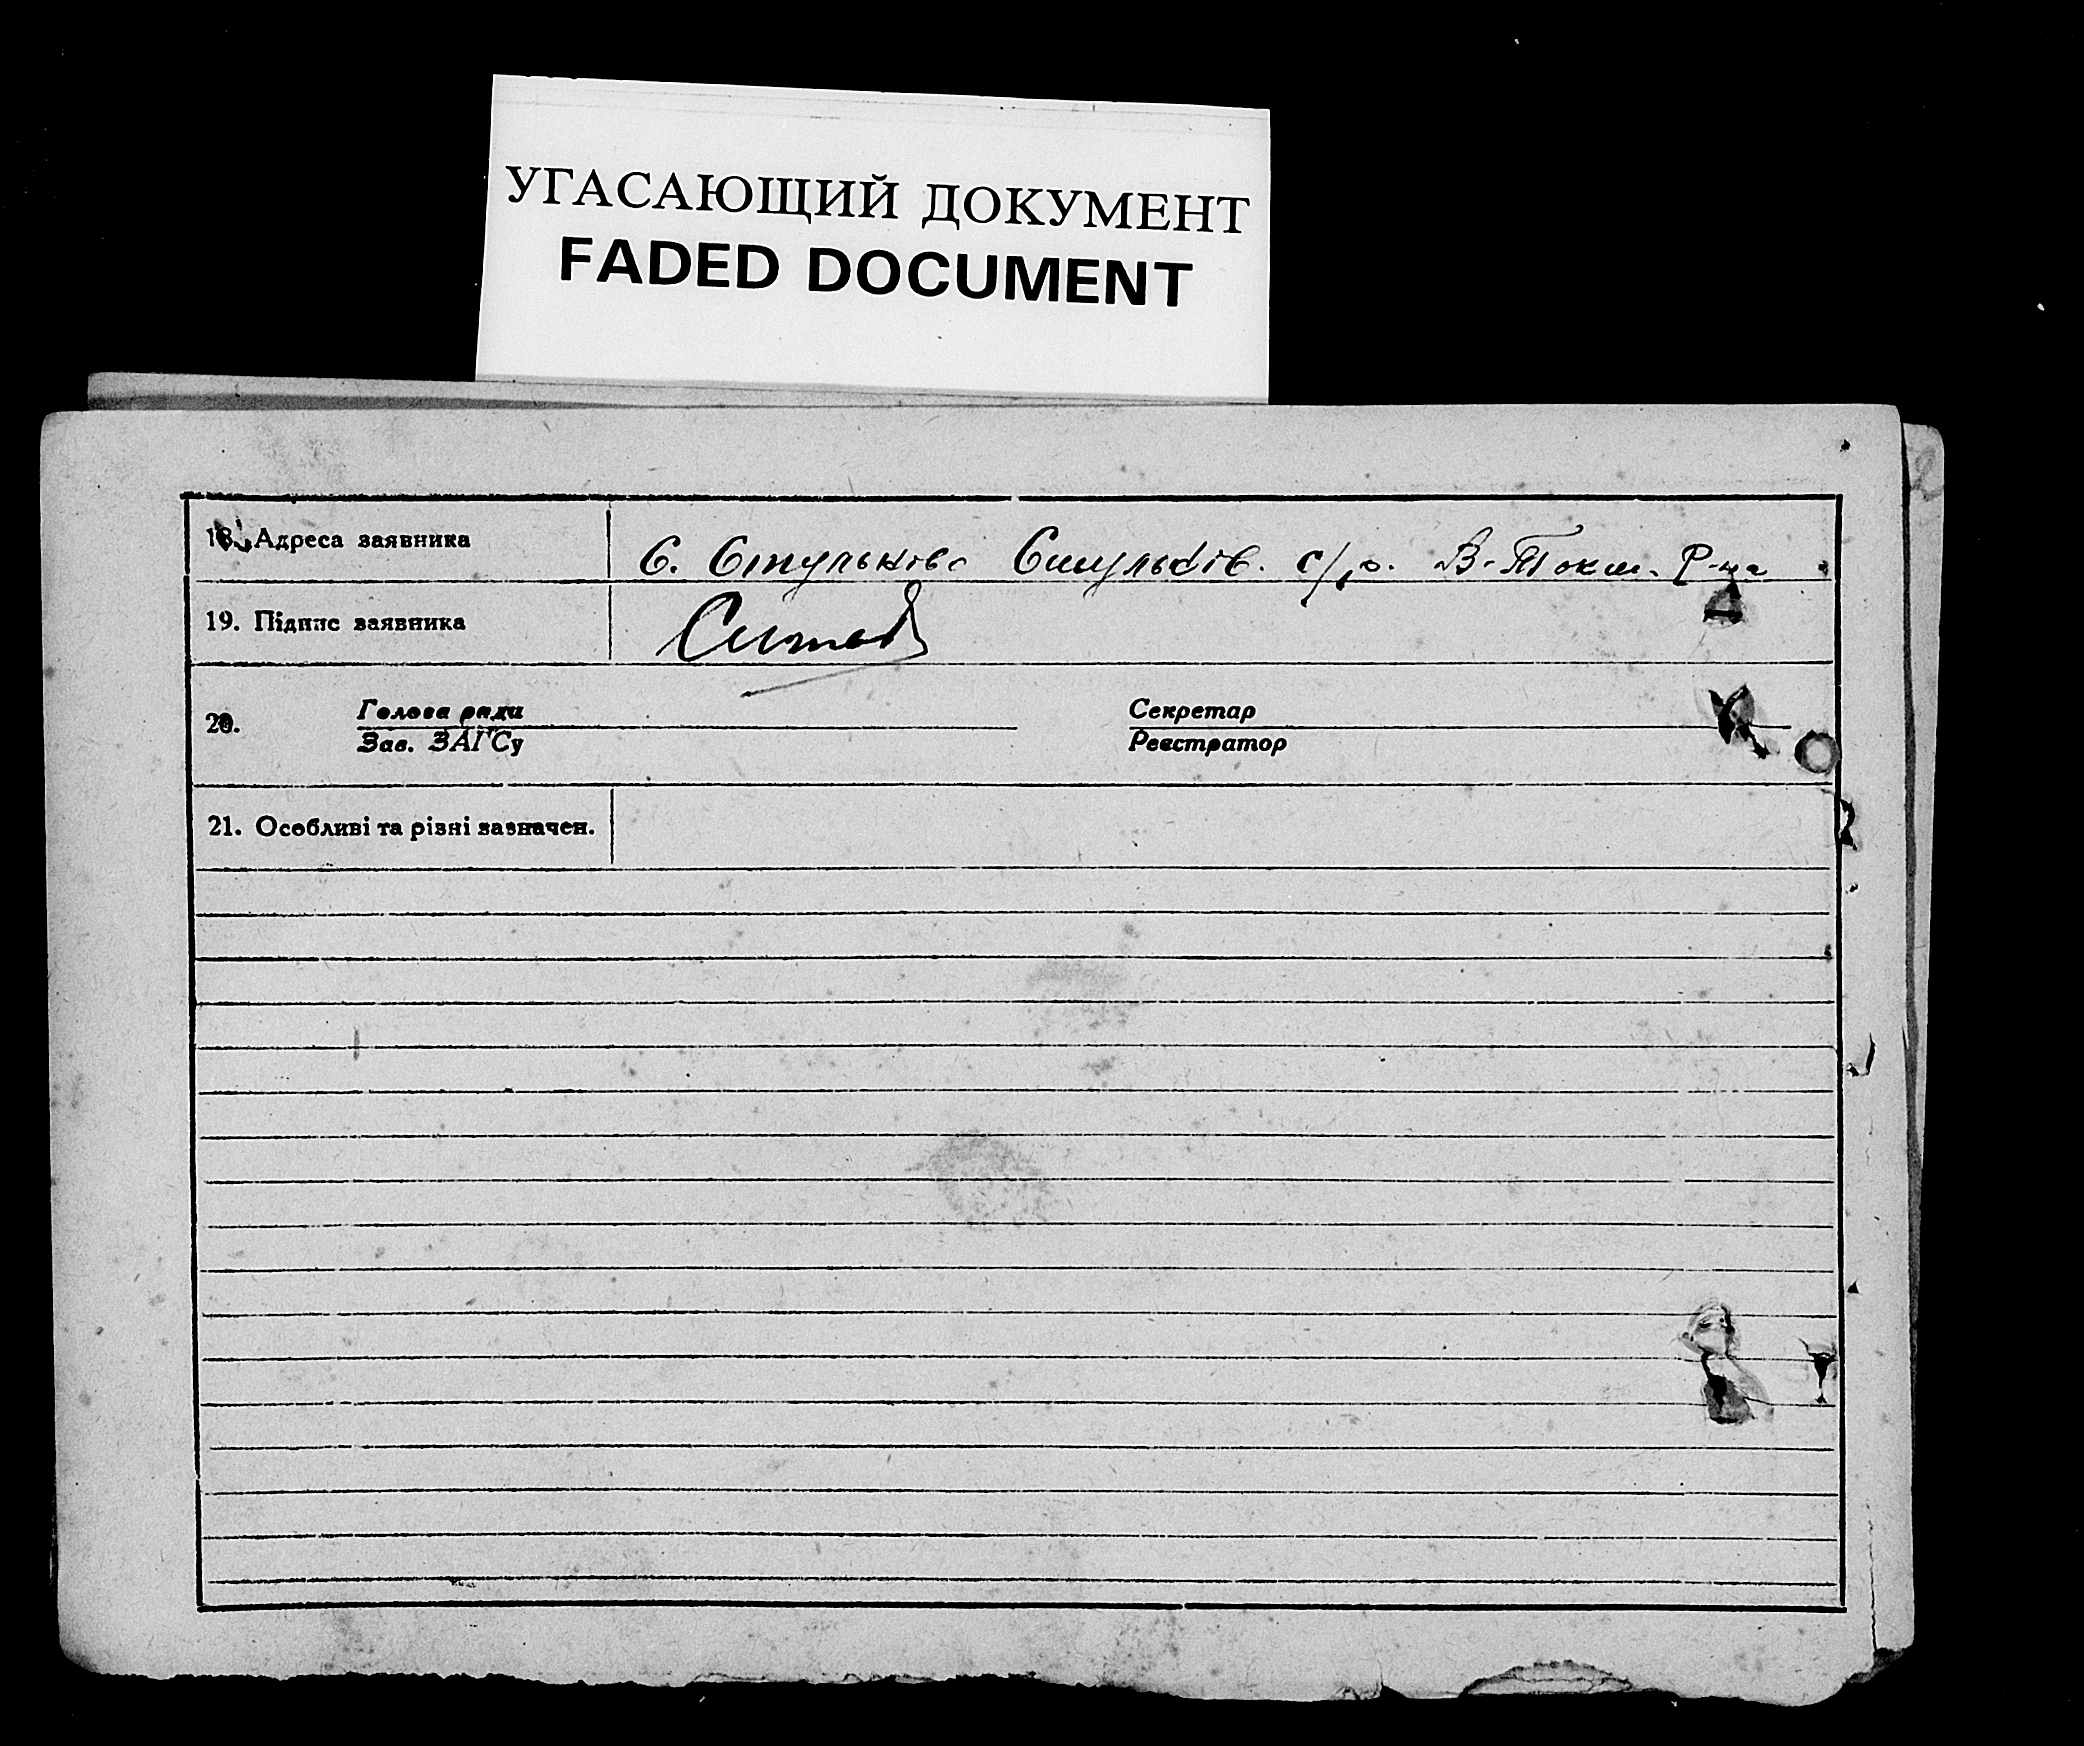 УГАСАЮЩИЙ ДОКУМЕНТ
FADED DOCUMENT
18. Адреса заявника С. Стульнёво Стульнів. с/р. В-Токм. Р-на
19. Підпис заявника
20. Голова ради Секретар
Зав. ЗАГСу Реєстратор
21. Особливі та різні зазначен.